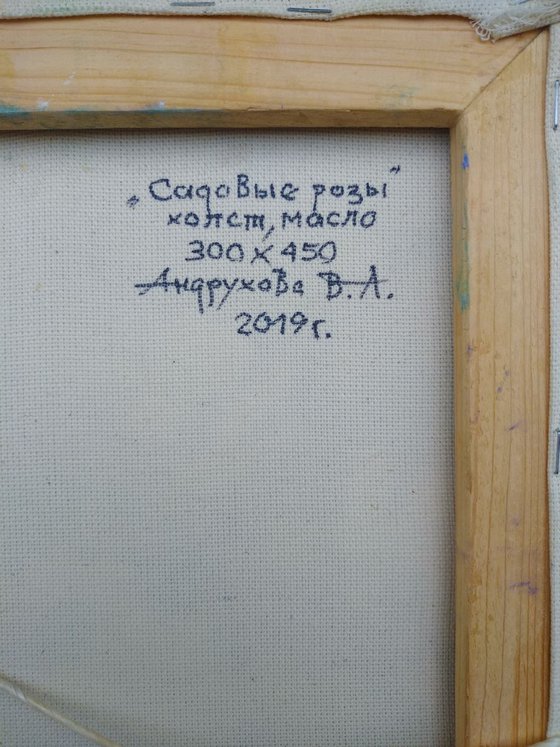 „Садовые розы"
холст, масло
300 х 450
Андрухова В.А.
2019г.